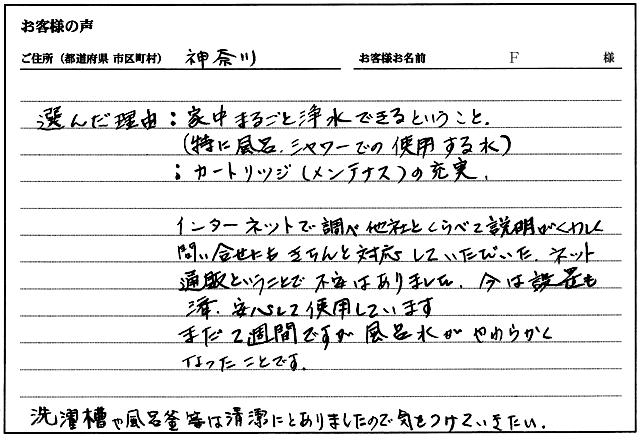 お客様の声
ご住所（都道府県 市区町村） 神奈川 お客様お名前 F 様
選んだ理由：家中まるごと浄水できるということ．
（特に風呂．シャワーでの使用する水）
；カートリッジ（メンテナス）の充実．
インターネットで調べ他社とくらべて説明がくわしく
問い合せにもきちんと対応していただいた．ネット
通販ということで不安はありました．今は設置も
済．安心して使用しています
まだ2週間ですが風呂水がやわらかく
なったことです．
洗濯槽や風呂釜等は清潔にとありましたので気をつけていきたい．